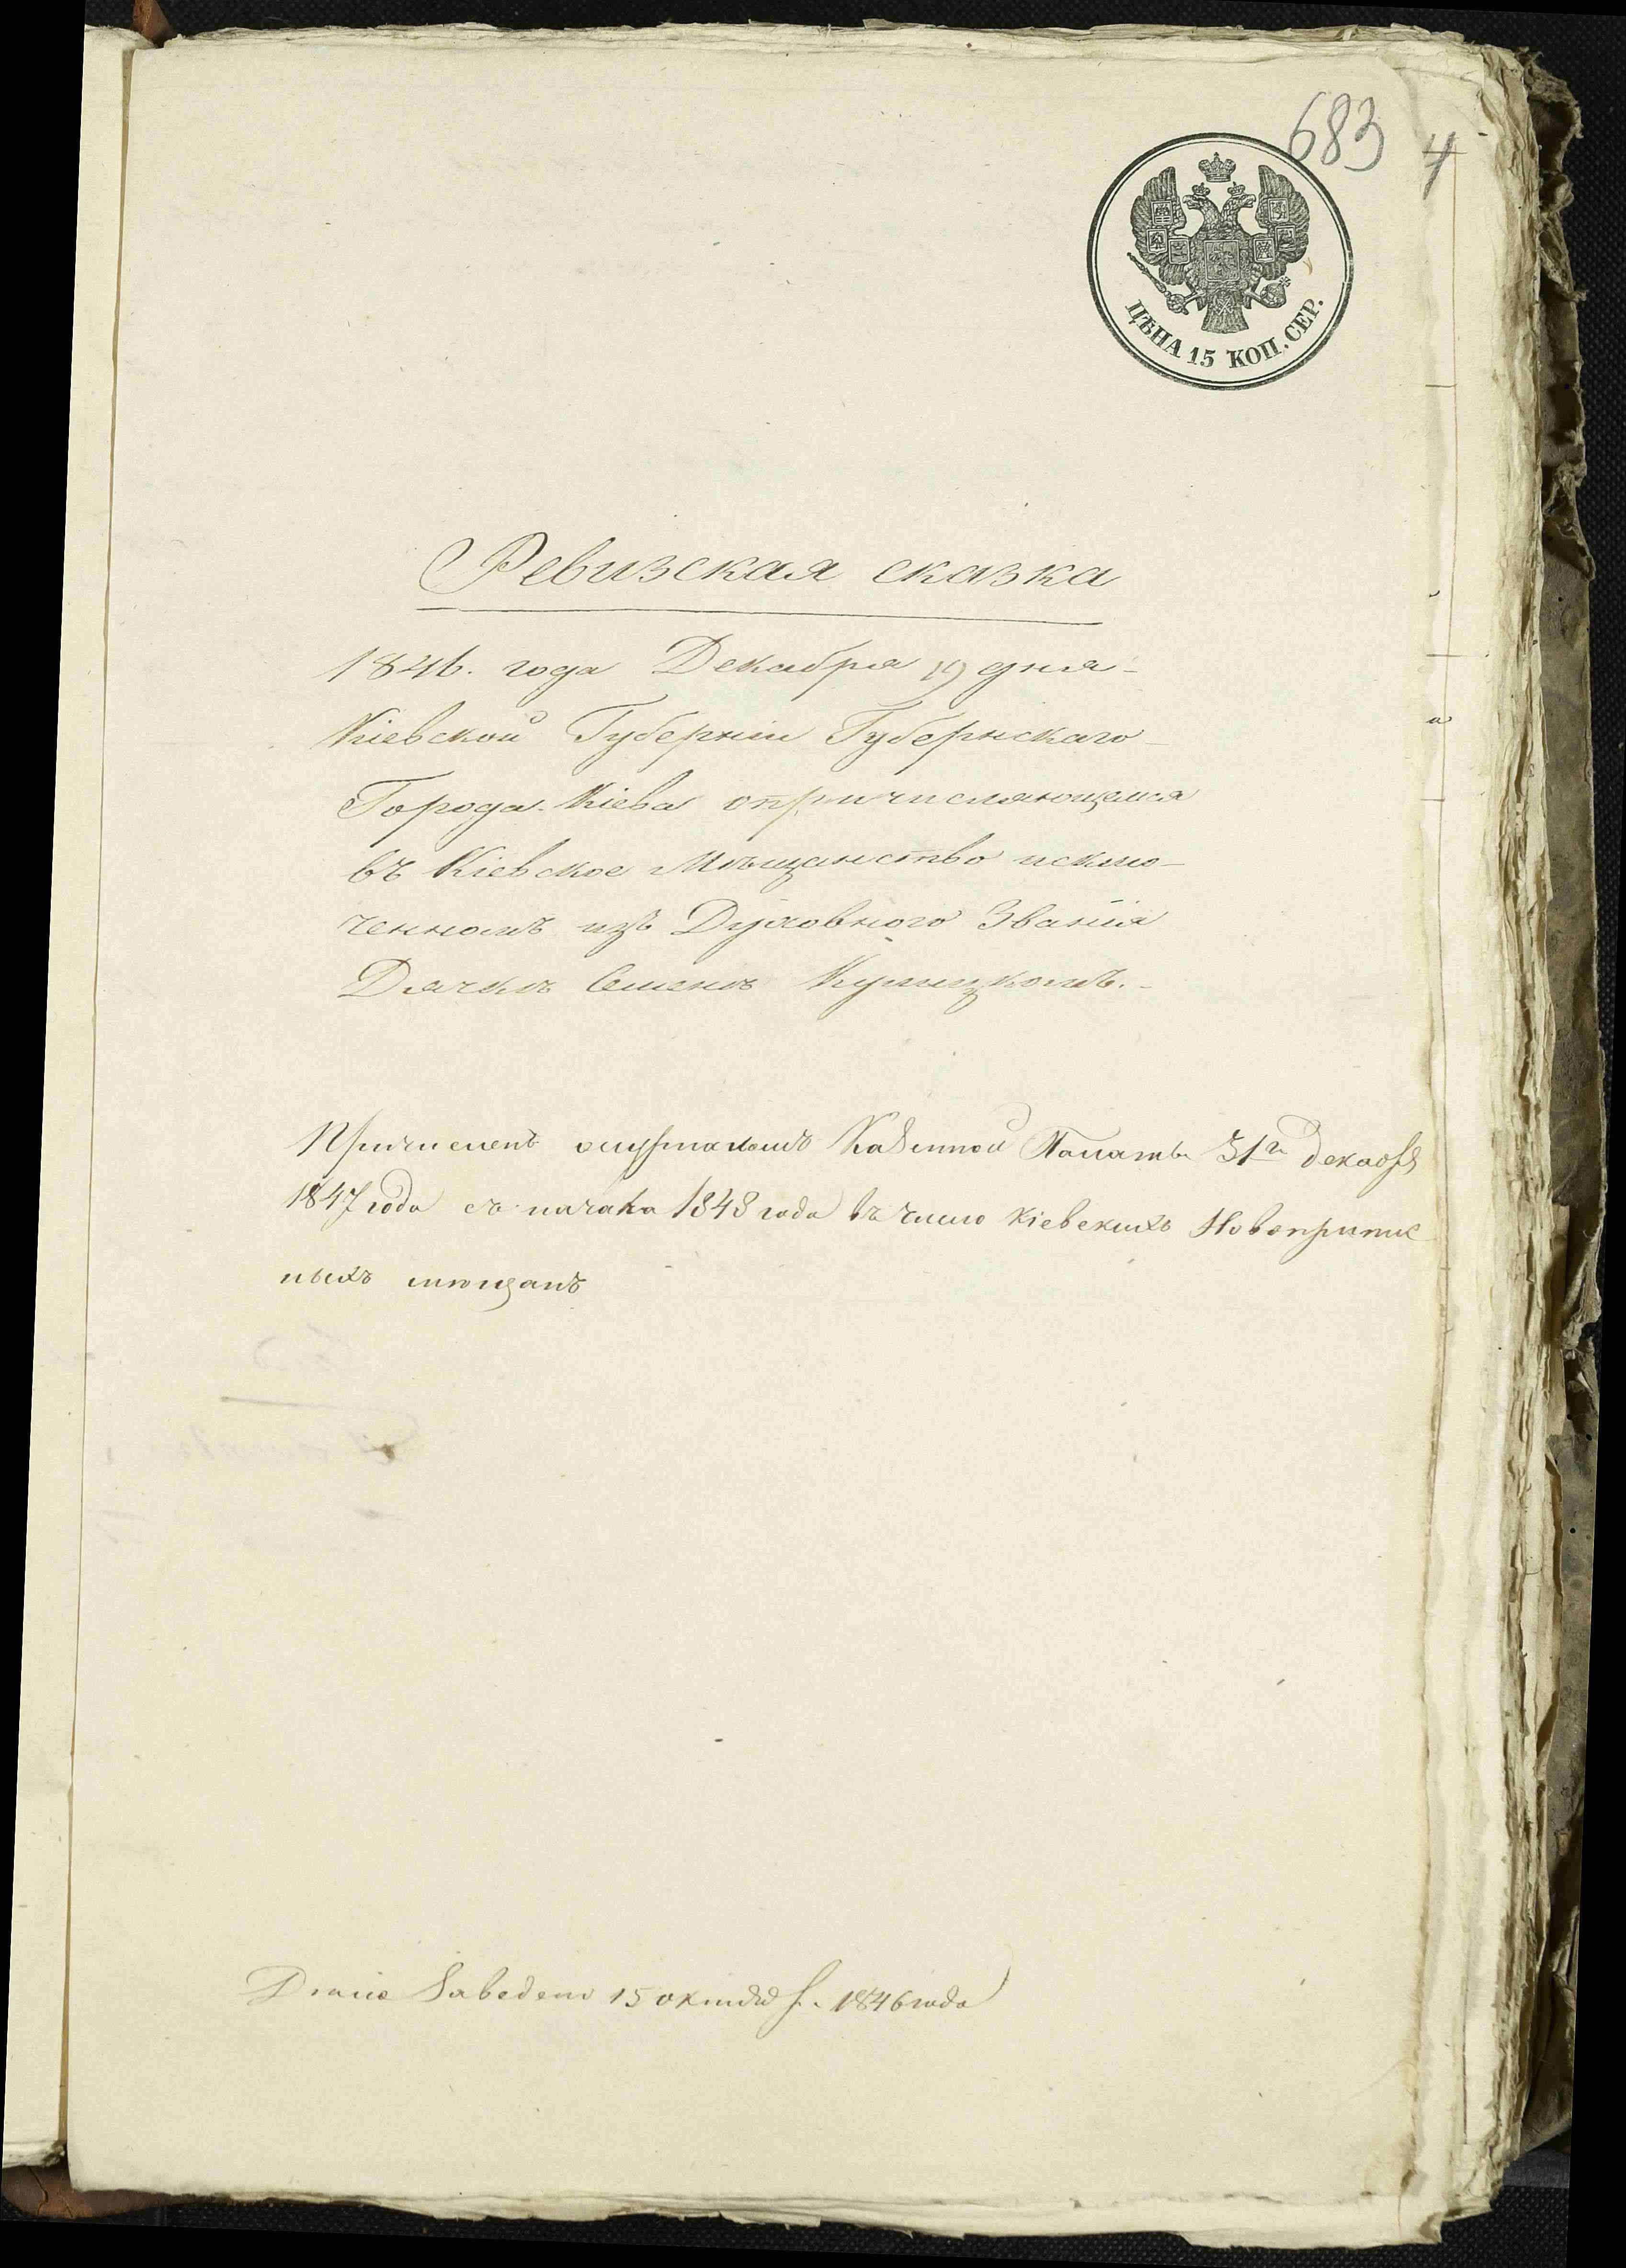 683
4
ЦѢНА 15 КОП. СЕР.
Ревизская сказка
1846. года Декабря 19 дня
Кіевской Губерніи Губернскаго
Города Кіева опричисляющемся
въ Кіевское Мѣщанство исклю-
ченномъ изъ Духовного Званія
Дячкѣ Семенѣ
Причисленъ Казенной Палаты 31го декабря
1847 года съ начала 1848 года въ число Кіевскихъ Новоприпис
ныхъ мѣщанъ
Заведено 15 октября 1846 года